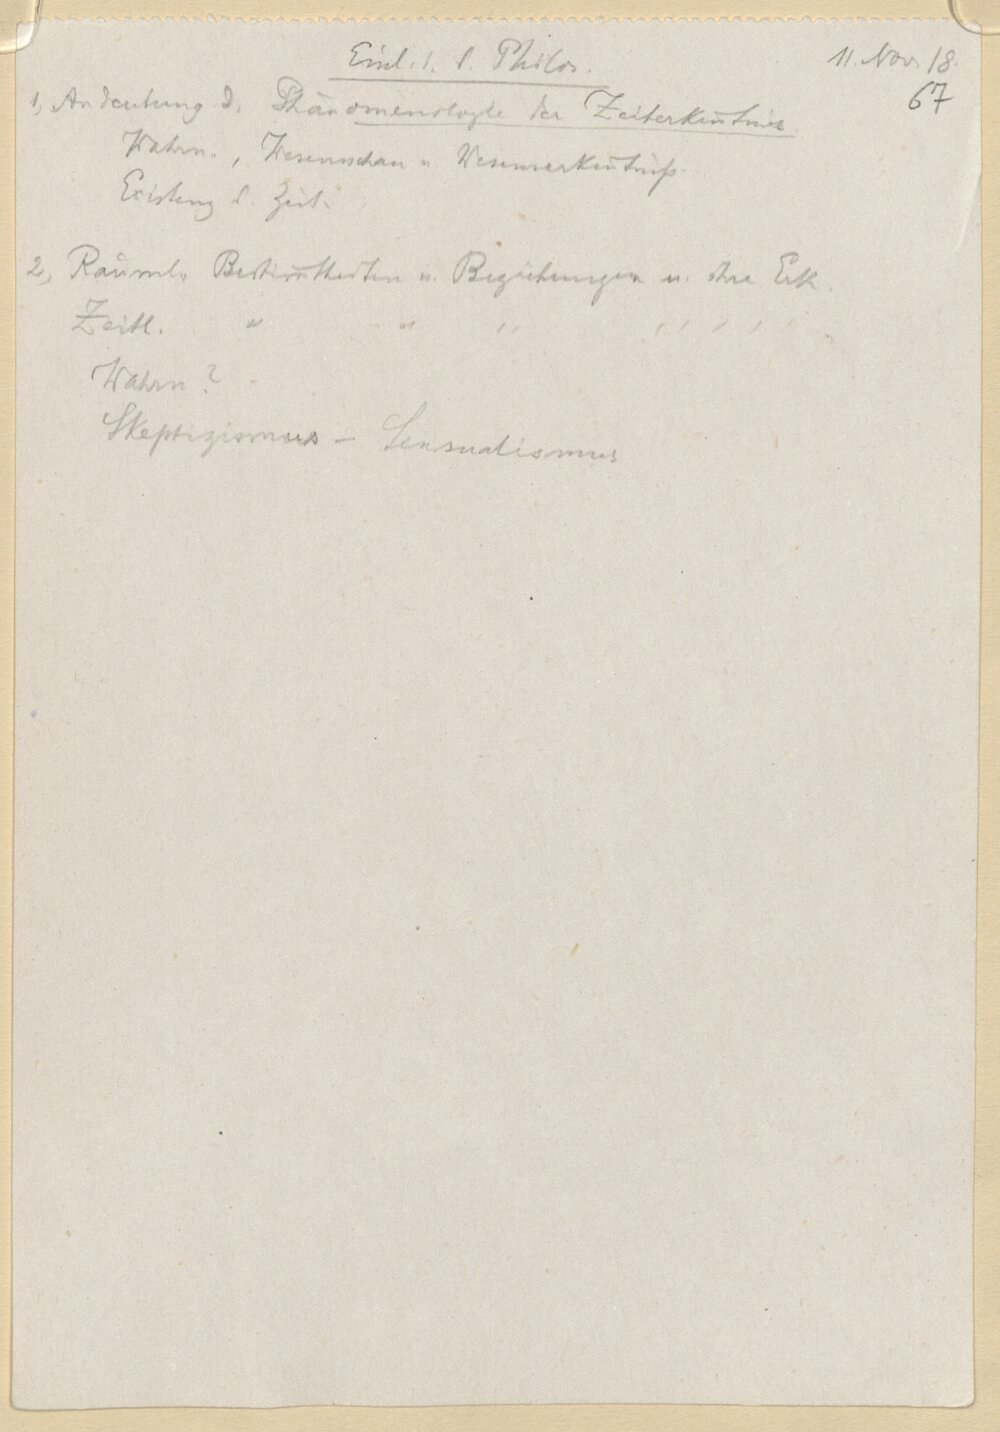 Einl. i. d. Philos.
11. Nov. 18.
67
1, Andeutung d. Phänomenologie der Zeiterkeñtnis
Wahrn., Wesensschau u. Wesenserkeñtniß
Existenz d. Zeit.
2, Räuml. Bestim̅theiten u. Beziehungen u. ihre Erk.
Zeitl. " " " " " "
Wahrn?
Skeptizismus – Sensualismus